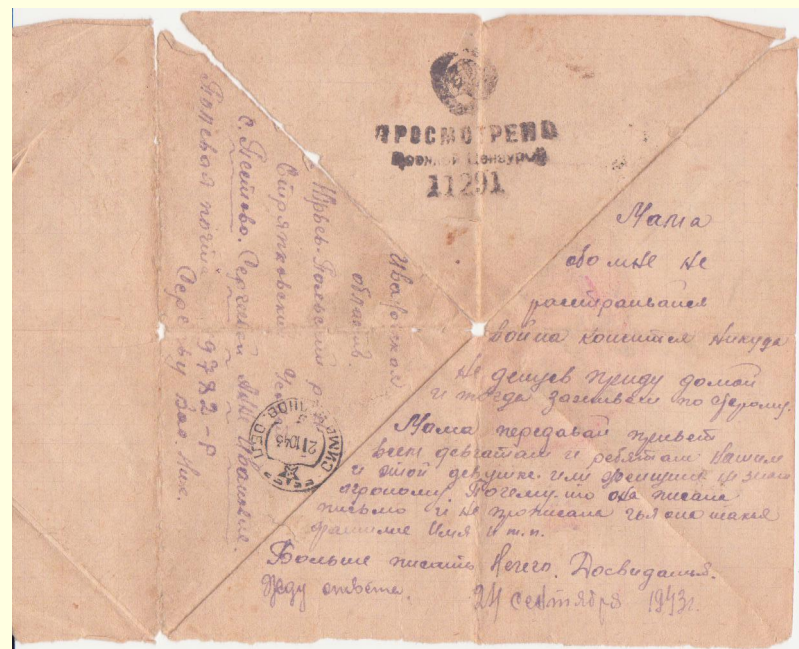 ПРОСМОТРЕНО
Военной Цензурой
11291
Мама
обо мне не
расстраивайся
война кончится никуда
не денусь приду домой
и тогда заживем по старому.
Мама передавай привет
всем девчатам и ребятам нашим
и этой девушке или женщине
агроному. Почему что она писала
письмо и не прописала чья она такая
фамилие имя и т.п.
Больше писать нечего. Досвиданья.
Жду ответа. 24 сентября 1943г.
Ивановская
область
Юрьев. Польский р-н
Стряпковский
с.
Сергеевой Ивановне.
Полевая почта 9782-
21 10 43